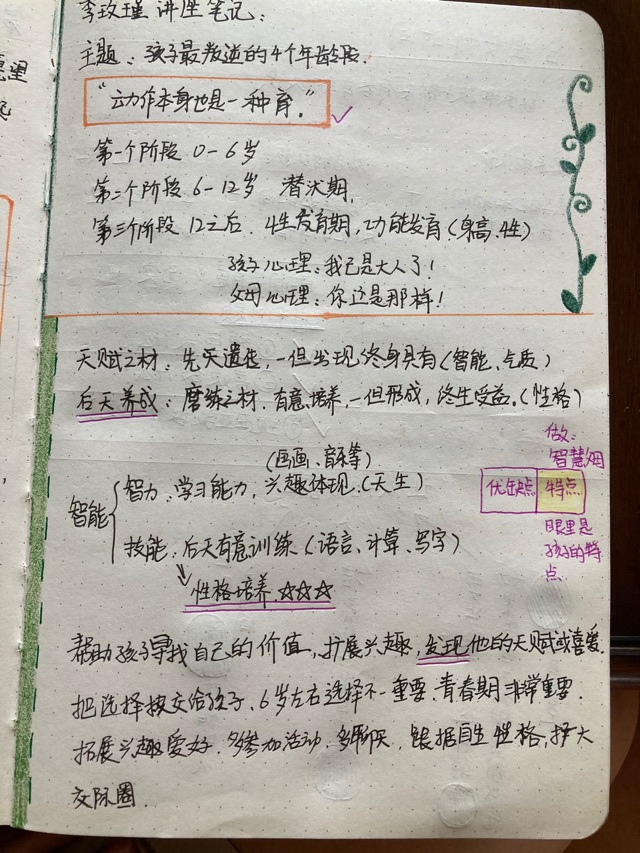 李玫瑾 讲座笔记:
主题: 孩子最叛逆的4个年龄段.
"动作本身也是一种育."
第一个阶段 0-6岁
第二个阶段 6-12岁 潜伏期,
第三个阶段 12之后. 性发育期, 功能发育(身高、性)
孩子心理: 我已是大人了!
父母心理: 你还是那样!
天赋之材: 先天遗传, 一但出现终身具有(智能、气质)
后天养成: 磨练之材. 有意培养, 一但形成, 终生受益.(性格)
(画画、音乐等)
智能
智力: 学习能力, 兴趣体现.(天生)
技能: 后天有意训练(语言、计算、写字)
性格培养.☆☆☆
做:
智慧妈
优缺点 特点
眼里是
孩子的特
点.
帮助孩子寻找自己的价值, 扩展兴趣, 发现他的天赋或喜爱.
把选择权交给孩子、6岁左右选择不一重要. 青春期非常重要.
拓展兴趣爱好. 多参加活动. 多聊天. 根据自生性格, 扩大
交际圈.